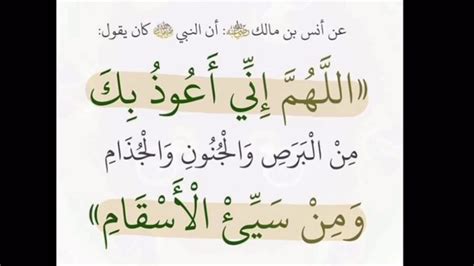 عن أنس بن مالك ﷺ: أن النبي ﷺ كان يقول:
«اللَّهُمَّ إِنِّي أَعُوذُ بِكَ
مِنْ الْبَرَصِ وَالْجُنُونِ وَالْجُذَامِ
وَمِنْ سَيِّئْ الْأَسْقَامِ»